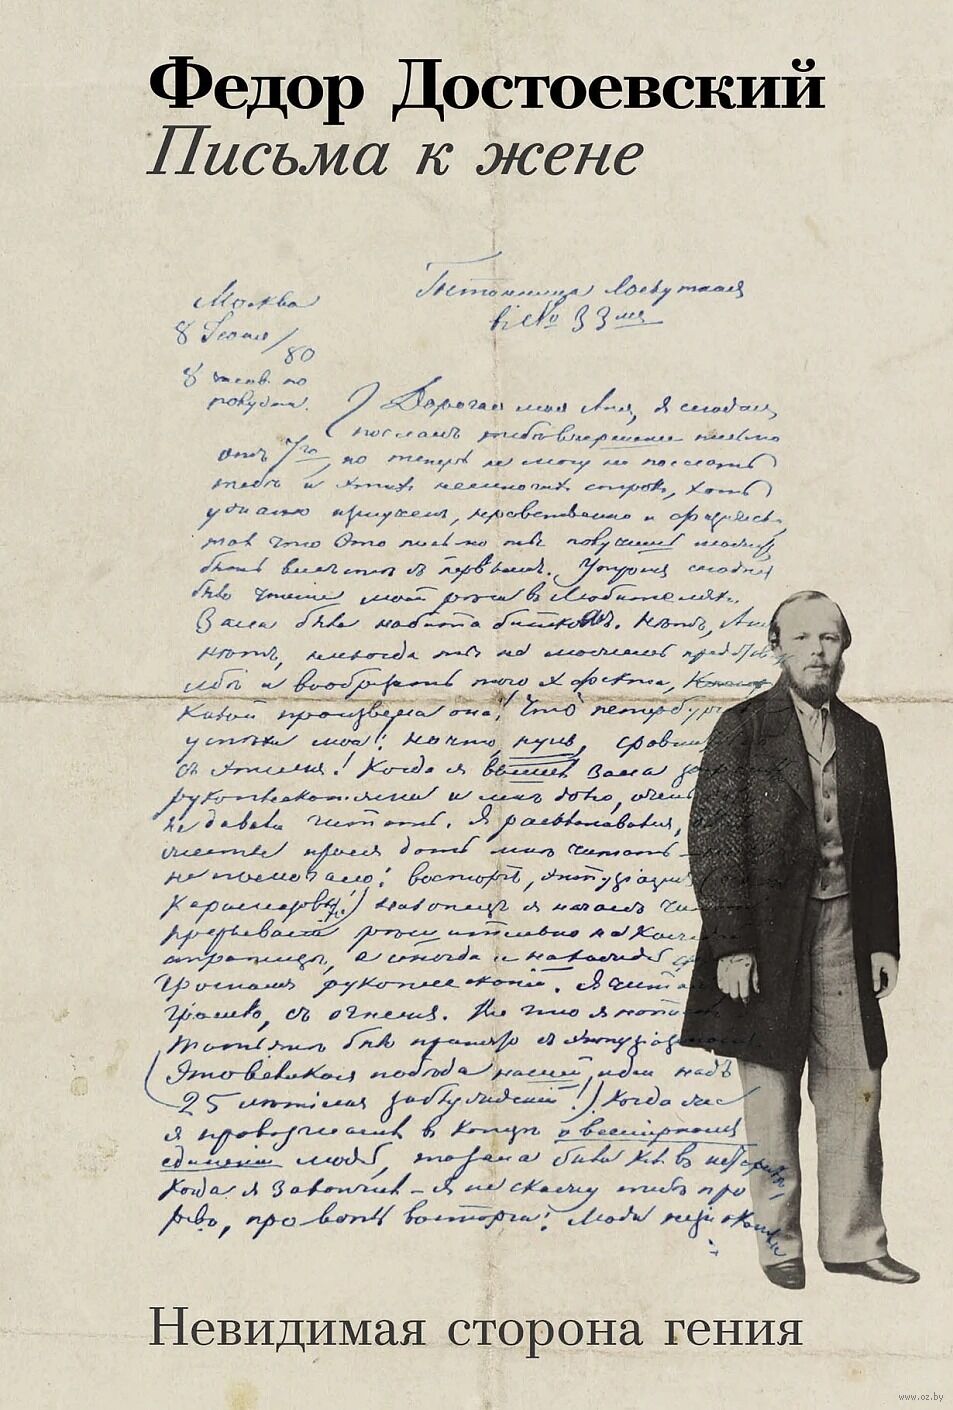 Федор Достоевский
Письма к жене
Гостинница Лоскутная
в № 33мъ
Москва
8 Iюня/80
8 часв. по
полудни.
Дорогая моя Аня, я сегодня
послалъ тебѣ вчерашнее письмо
отъ 7го, но теперь не могу не послать
тебѣ и этихъ немногихъ строкъ, хоть
ужасно измученъ, нравственно и физически,
такъ что это письмо ты получишь можетъ
быть вмѣстѣ съ первымъ. Утромъ сегодня
было чтенiе моей рѣчи въ Любителяхъ.
Зала была набита биткомъ. Нѣтъ, Аня
нѣтъ, никогда ты не можешь представить
себѣ и вообразить того эффекта,
какой произвела она! Что петербургскiе
успѣхи мои! Ничто, нуль, сравнительно
съ этимъ! Когда я вышелъ зала
рукоплесканiями и мнѣ долго, очень
не давали читать. Я раскланивался,
жесты прося дать мнѣ читать –
не помогало: восторгъ, энтузiазмъ
Карамазовы!) Наконецъ я началъ
прерывали рѣшительно на каждой
страницѣ, а иногда и на каждой
громомъ рукоплесканiй. Я читалъ
громко, съ огнемъ. Все что я написалъ
Татьянѣ было принято съ энтузiазмомъ.
(Это великая побѣда нашей идеи надъ
25 лѣтiемъ заблужденiй!) Когда же
я провозгласилъ въ концѣ о всемiрномъ
единенiи людей, то зала была какъ въ истерикѣ,
когда я закончилъ – я не скажу тебѣ про
ревъ, про вопль восторга: люди незнакомые
Невидимая сторона гения
www.oz.by